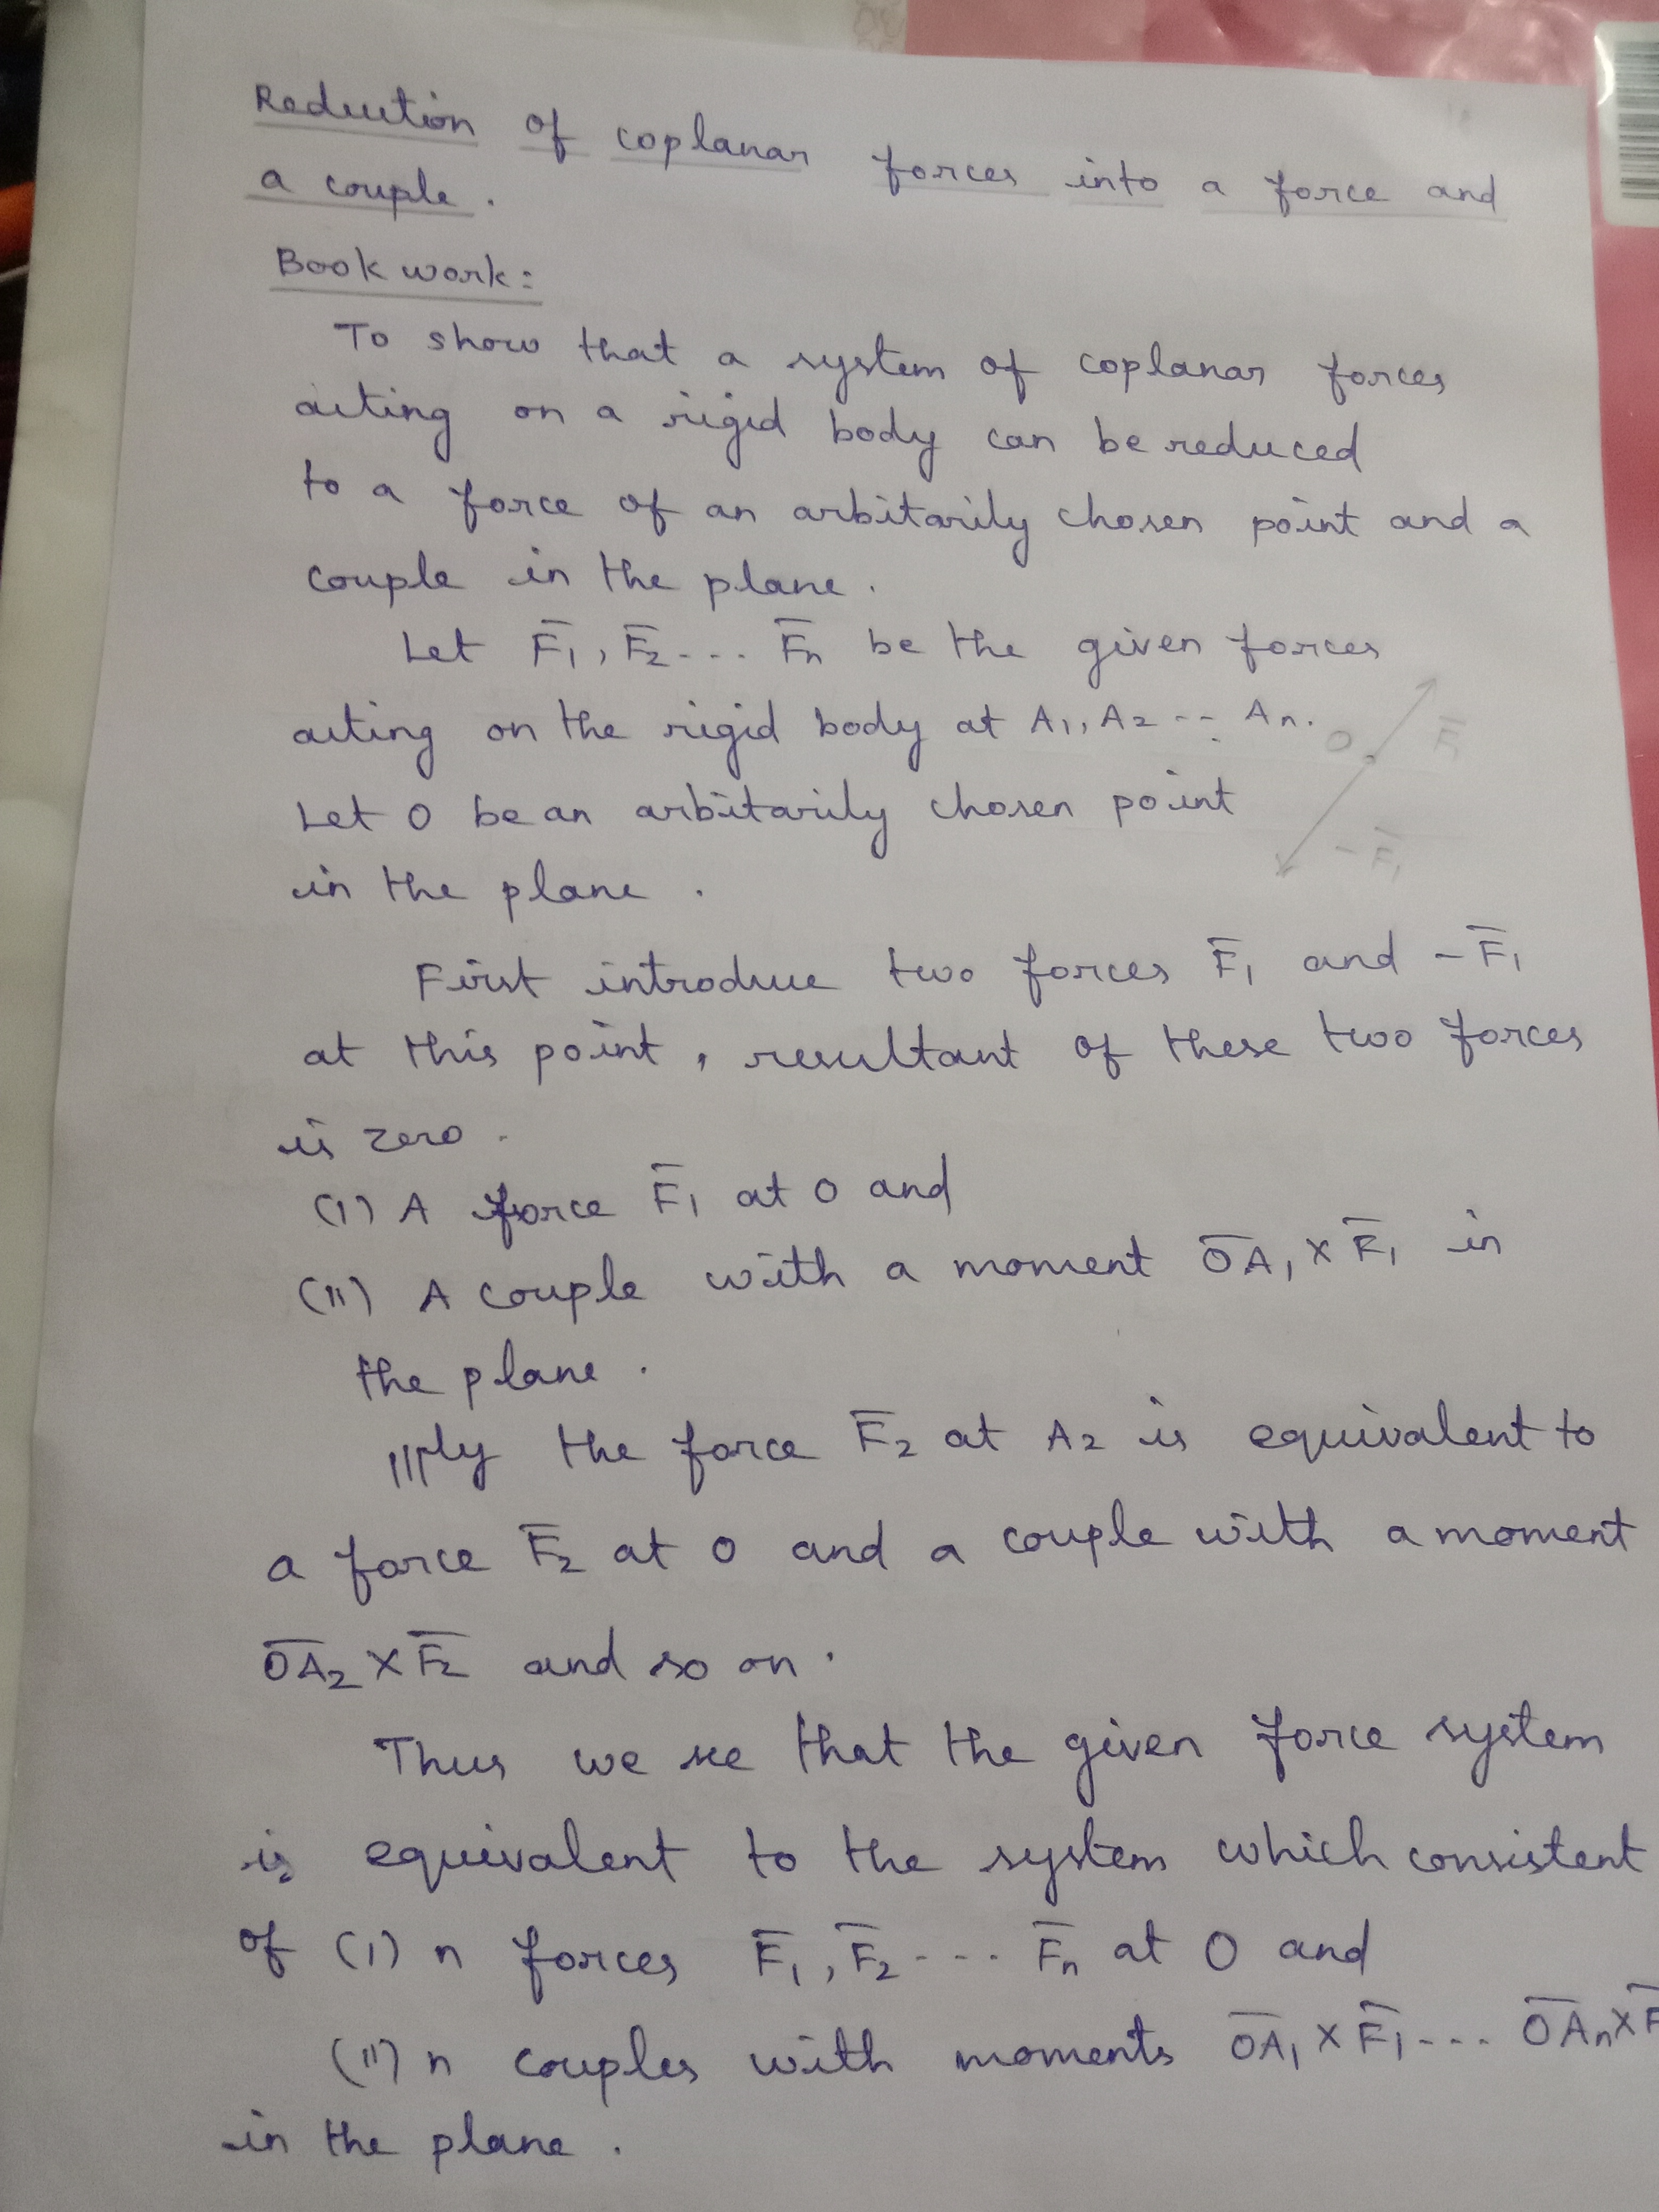 Reduction of coplanar forces into a force and
a couple.
Book work:
To show that a system of coplanar forces
acting on a rigid body can be reduced
to a force of an arbitarily chosen point and a
couple in the plane.
Let F̅₁, F̅₂ --- F̅n be the given forces
acting on the rigid body at A₁, A₂ -- An.
O F̅₁
Let O be an arbitarily chosen point
- F̅₁
in the plane.
First introduce two forces F̅₁ and -F̅₁
at this point, resultant of these two forces
is zero.
(i) A force F̅₁ at O and
(ii) A couple with a moment O̅A̅₁ × F̅₁ in
the plane.
|||ly the force F̅₂ at A₂ is equivalent to
a force F̅₂ at O and a couple with a moment
O̅A̅₂ × F̅₂ and so on.
Thus we see that the given force system
is equivalent to the system which consistent
of (i) n forces F̅₁, F̅₂ --- F̅n at O and
(ii) n couples with moments O̅A̅₁ × F̅₁ --- O̅A̅n × F̅
in the plane.